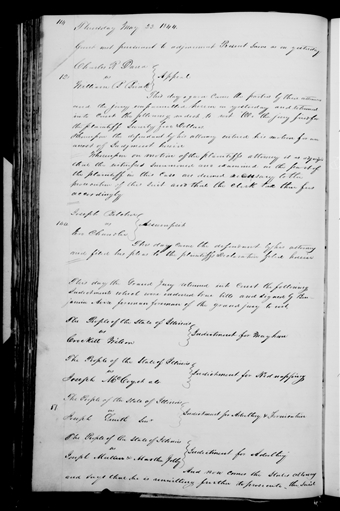 Thursday May 23. 1844.
Court met pursuant to adjournment Present same as on yesterday
Charles R
vs
Appeal
William S
This day again came the parties by their attorneys
and the jury empannelled herein on yesterday and returned
into Court the following verdict to wit We the jury find for
the plaintiff Seventy five Dollars
Whereupon the defendant by his attorney entered his motion for an
arrest of Judgement herein
Whereupon on motion of the plaintiffs attorney it is
that the witnesses summoned and examined on the part of
the plaintiff in this Case are deemed necessary to the
prosecution of this suit and that the clerk tax their fees
accordingly
Joseph
vs
Assumpsit
Chandler
This day came the defendant by his attorney
and filed his plea to the plaintiffs Declaration filed herein
This day the Grand Jury returned into Court the following
Indictments which were endorsed true bills and signed by
foreman of the grand jury to wit
The People of the State of Illinois
vs
Indictment for
Wilson
The People of the State of Illinois
vs
Indictment for Kidnapping
Joseph
The People of the State of Illinois
vs
Indictment for Adultery & Fornication
Joseph
The People of the State of Illinois
vs
Indictment for Adultery
Joseph & Martha
And now comes the States attorney
and says that he is unwilling further to prosecute the said